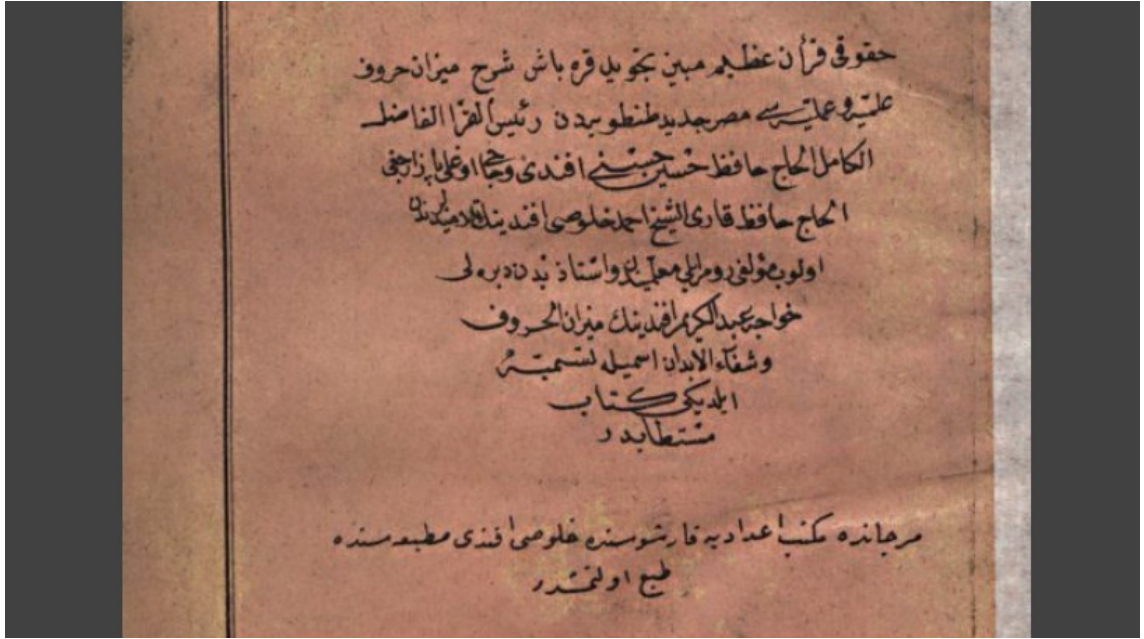 حقوقى قرأن عظيم مبين تجويد قره باش شرح ميزان حروف
علميه و عمليه سى مصر جديد طنطو بدن رئيس القرا الفاضل
الكامل الحاج حافظ حسين حسنى افندى وحجا اوغلى پازارجقى
الحاج حافظ قارى الشيخ احمد خلوصى افندينك
اولوب مؤلفى روم ايلى واستاذ بدن دبره لى
خواجه عبد الكريم افندينك ميزان الحروف
وشفآء الابدان اسميله تسميه
ايلديكى كتاب
مستطابدر
مرجانده مكتب اعداديه قارشوسنده خلوصى افندى مطبعه سنده
طبع اولنمشدر